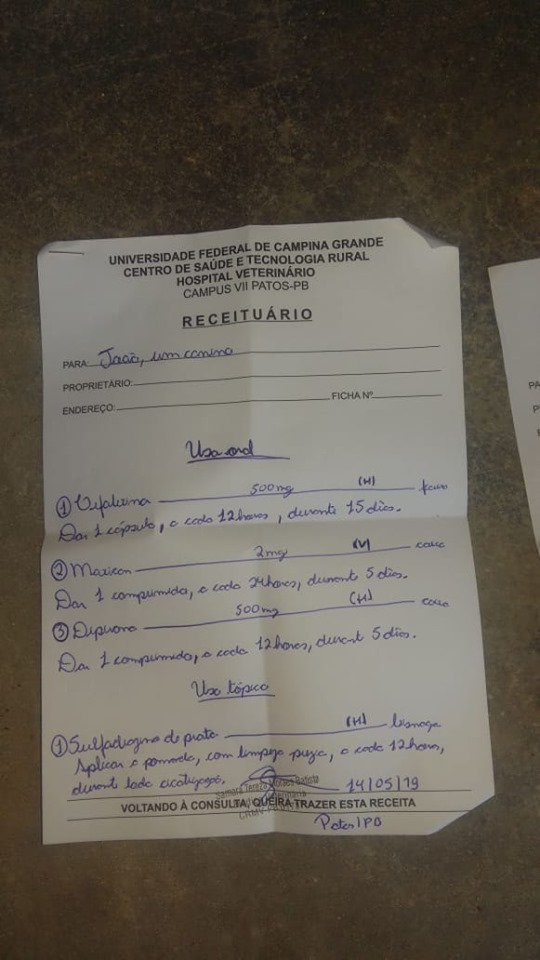 UNIVERSIDADE FEDERAL DE CAMPINA GRANDE
CENTRO DE SAÚDE E TECNOLOGIA RURAL
HOSPITAL VETERINÁRIO
CAMPUS VII PATOS-PB
RECEITUÁRIO
PARA: João, um canino
PROPRIETÁRIO:
ENDEREÇO: FICHA Nº
Uso oral
① Cefalexina 500mg (H)
Dar 1 cápsula, a cada 12 horas, durante 15 dias.
② Maxicam 2mg (V) caixa
Dar 1 comprimido, a cada 24 horas, durante 5 dias.
③ Dipirona 500mg (H) caixa
Dar 1 comprimido, a cada 12 horas, durante 5 dias.
Uso tópico
① Sulfadiazina de prata (H) bisnaga
Aplicar a pomada, com limpeza prévia, a cada 12 horas,
durante toda cicatrização.
Samara Tereza Batista
14/05/19
VOLTANDO À CONSULTA, QUEIRA TRAZER ESTA RECEITA
CRMV
Patos/PB